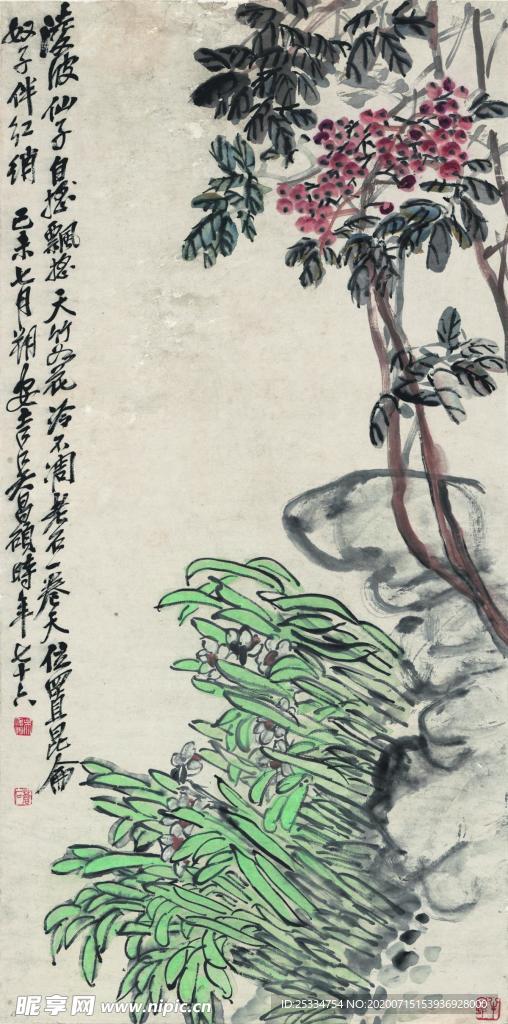 凌波仙子自摇飘摇天竹如花冷不凋老石一卷天位置昆仑
奴子伴红绡 己未七月朔安吉吴昌硕时年七十六
昵享网 www.nipic.cn
ID:25334754 NO:20200715153936928000